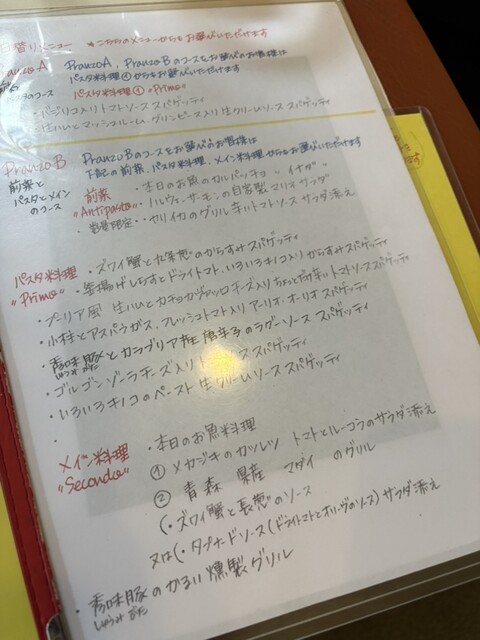 日替りメニュー ★こちらのメニューからもお選びいただけます
Pranzo A Pranzo A, Pranzo B のコースをお選びのお客様は
パスタ料理①からもお選びいただけます
パスタのコース パスタ料理① "Primo"
・バジリコ入りトマトソース スパゲッティ
・生ハムとマッシュルーム、グリンピース入り 生クリームソース スパゲッティ
Pranzo B Pranzo Bのコースをお選びのお客様は
下記の前菜、パスタ料理、メイン料理からもお選びいただけます
前菜と
パスタとメイン
のコース
前菜 ・本日のお魚のカルパッチョ "イナダ"
"Antipasto" ・ノルウェーサーモンの自家製マリネ サラダ
数量限定・ヤリイカのグリル 辛いトマトソース サラダ添え
パスタ料理 ・ズワイ蟹と九条葱のからすみスパゲッティ
"Primo" ・釜揚げしらすとドライトマト、いろいろキノコ入りからすみスパゲッティ
・プーリア風 生ハムとカチョカヴァッロチーズ入り ちょっと辛いトマトソーススパゲッティ
・小柱とアスパラガス、フレッシュトマト入り アーリオ・オーリオ スパゲッティ
・香味豚とカラブリア産 唐辛子のラグーソース スパゲッティ
・ゴルゴンゾーラチーズ入り ソース スパゲッティ
・いろいろキノコのペースト 生クリームソース スパゲッティ
メイン料理 ・本日のお魚料理
"Secondo" ① メカジキのカツレツ トマトとルーコラのサラダ添え
② 青森県産 マダイ のグリル
(・ズワイ蟹と長葱のソース
又は(・タプナードソース(ドライトマトとオリーヴのソース) サラダ添え
・香味豚のかるい燻製グリル